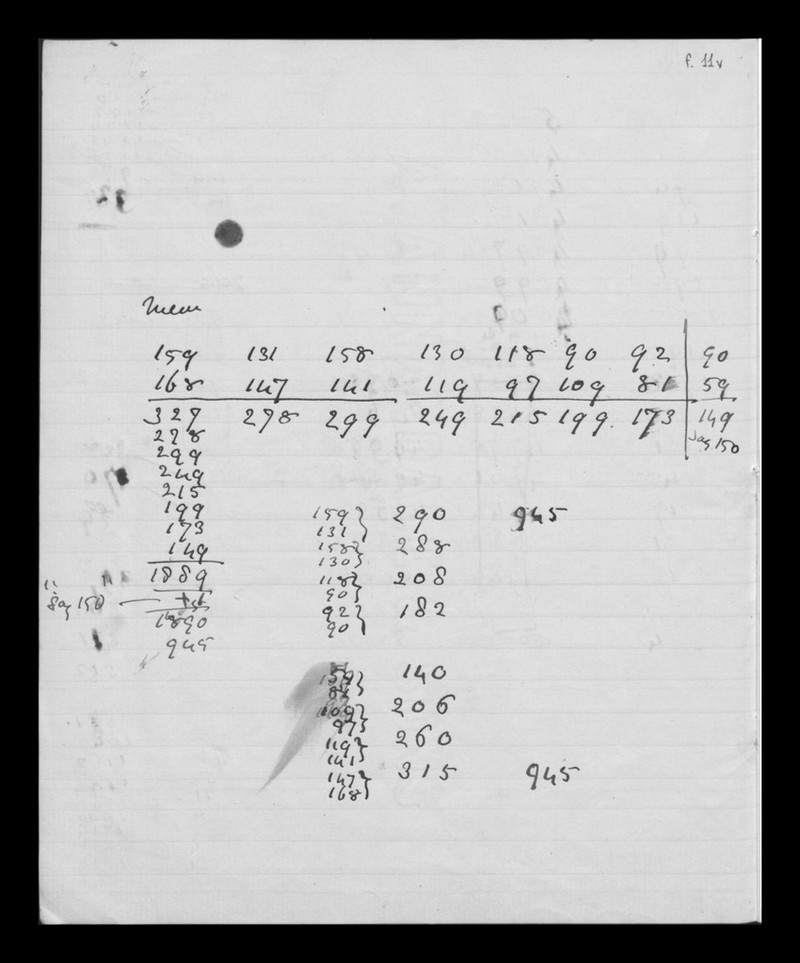 f. 11v
Mem
159 131 158 130 118 90 92 90
168 147 141 119 97 109 81 59
327 278 299 249 215 199 173 149
278 Say 150
299
249
215
199
173
149
1889
Say 150
1890
945
159 } 290 945
131
158 } 288
130
118 } 208
90
92 } 182
90
140
109 } 206
97
119 } 260
141
147 } 315 945
168